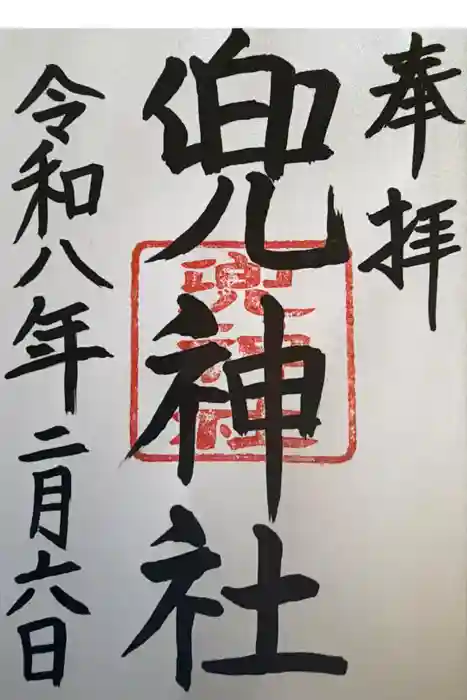 奉拝
兜神社
兜神社
令和八年二月六日